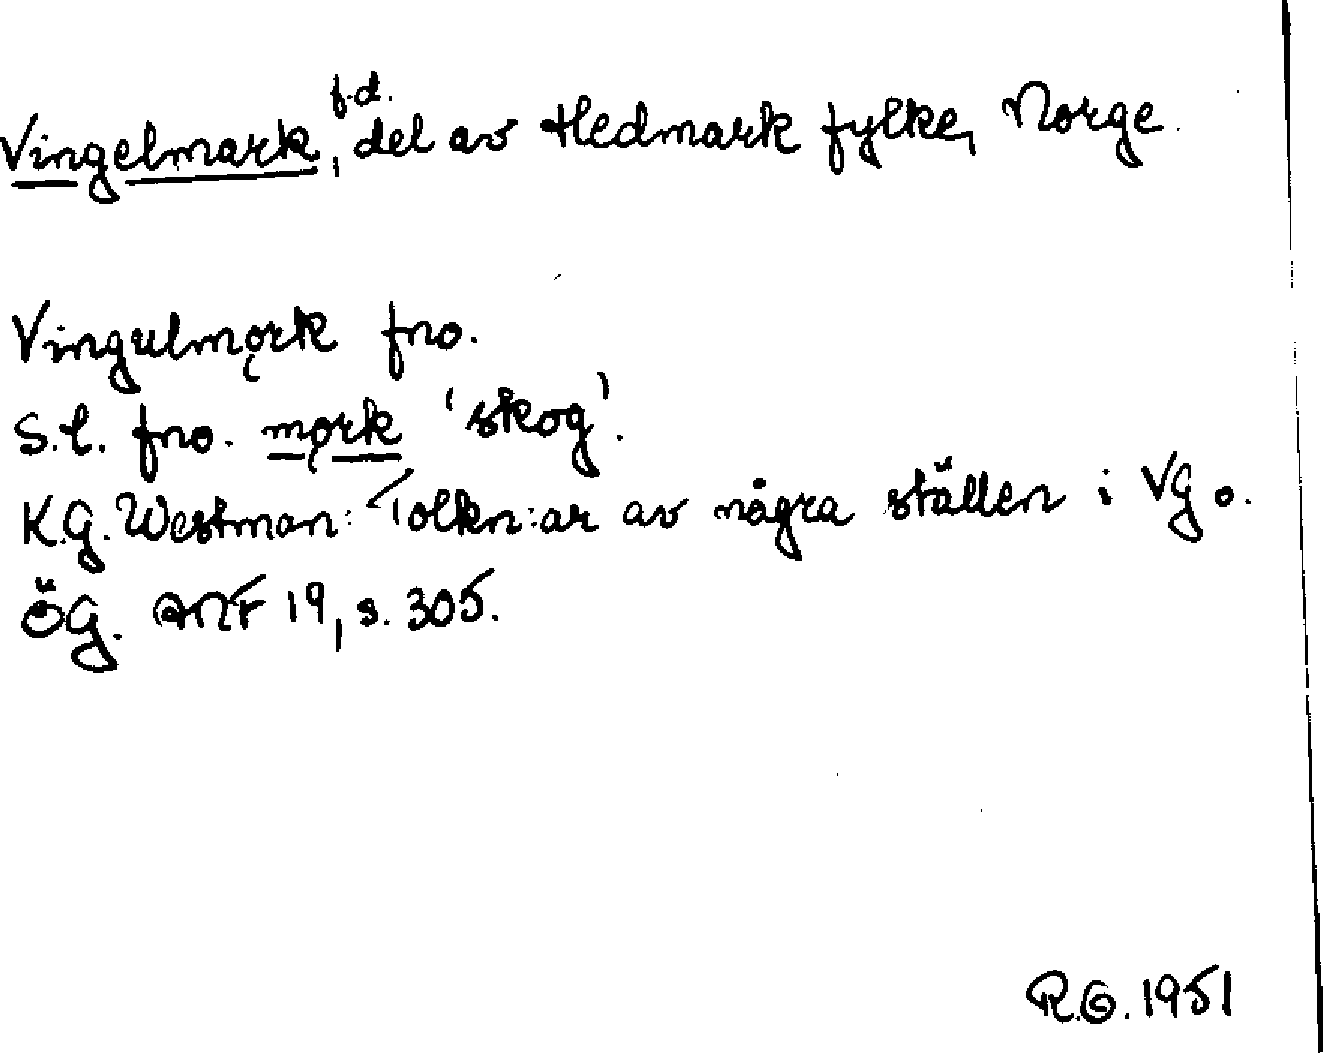 Vingelmark, f.d. del av Hedmark fylke, Norge.
Vingulmǫrk fno.
S.l. fno. mǫrk 'skog'.
K.G. Westman: Tolkn:ar av några ställen i VG o.
ÖG. ANF 19, s. 305.
R.G. 1951